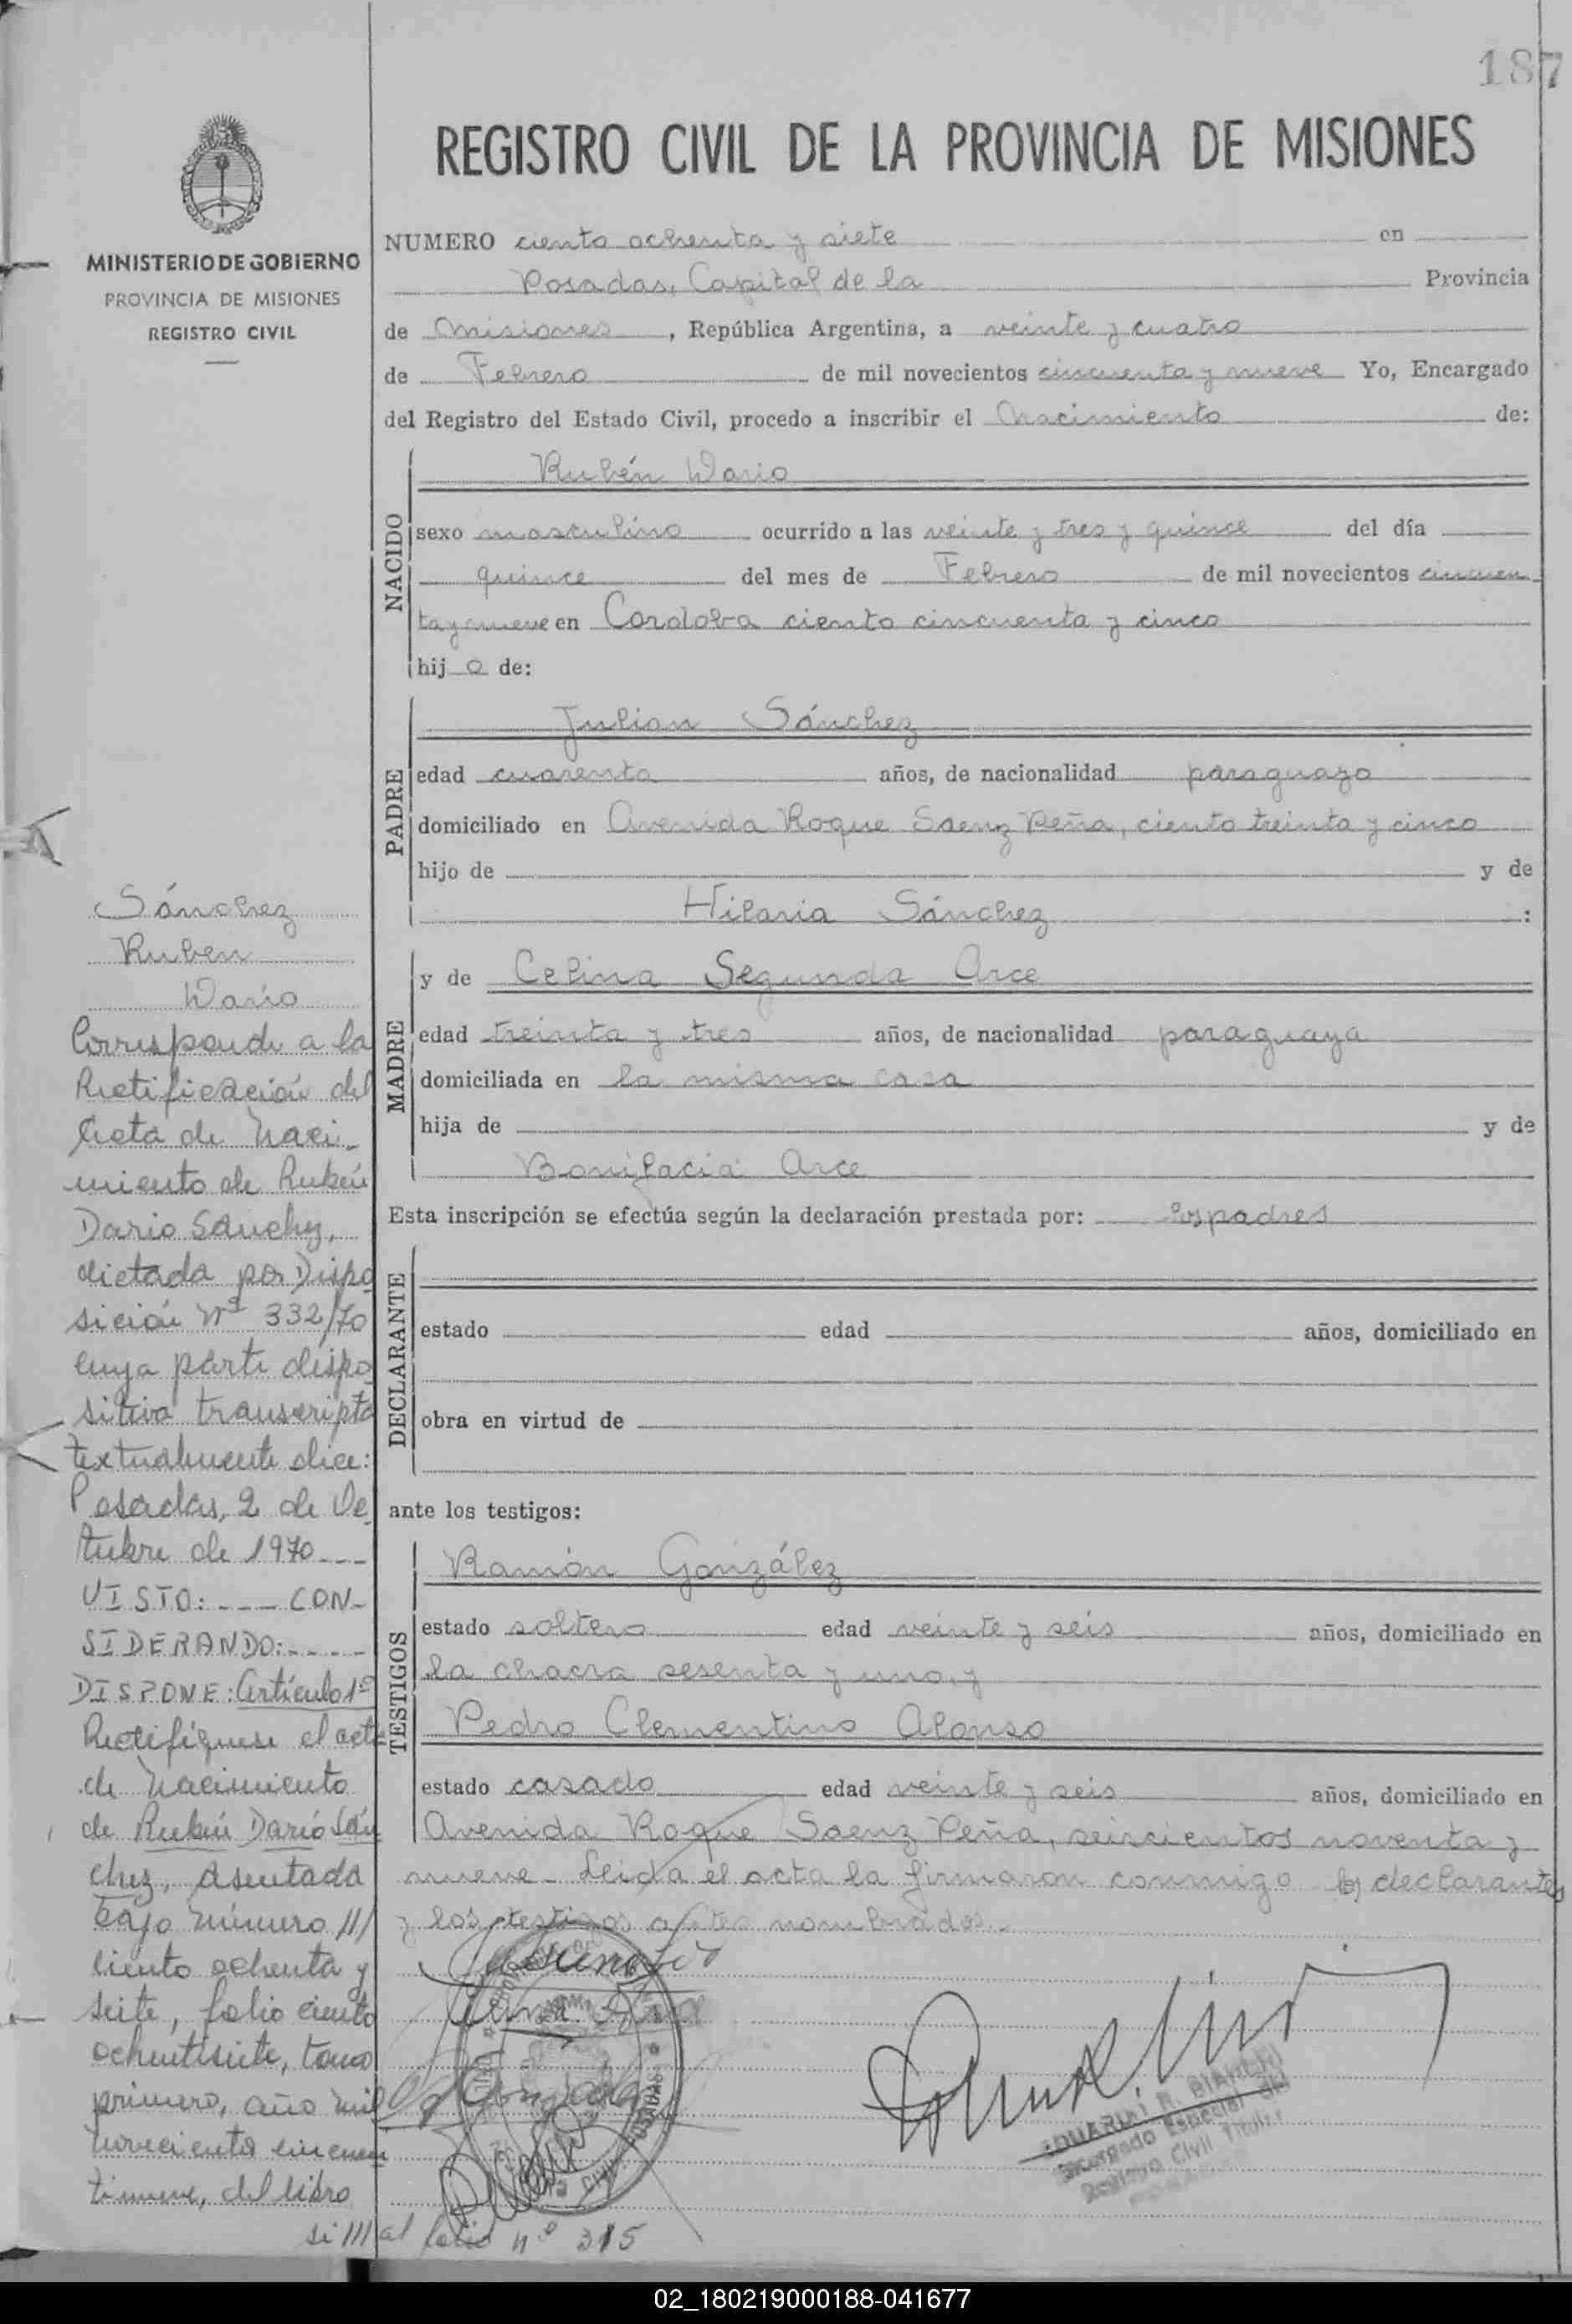 187
REGISTRO CIVIL DE LA PROVINCIA DE MISIONES
MINISTERIO DE GOBIERNO
PROVINCIA DE MISIONES
REGISTRO CIVIL
NUMERO ciento ochenta y siete en
Posadas, Capital de la Provincia
de Misiones, República Argentina, a veinte y cuatro
de Febrero de mil novecientos cincuenta y nueve Yo, Encargado
del Registro del Estado Civil, procedo a inscribir el Nacimiento de:
NACIDO
Rubén Dario
sexo masculino ocurrido a las veinte y tres y quince del día
quince del mes de Febrero de mil novecientos cincuen
ta y nueve en Cordoba ciento cincuenta y cinco
hij o de:
PADRE
Julian Sánchez
edad cuarenta años, de nacionalidad paraguayo
domiciliado en Avenida Roque Saenz Peña, ciento treinta y cinco
hijo de y de
Hilaria Sánchez :
MADRE
y de Celina Segunda Arce
edad treinta y tres años, de nacionalidad paraguaya
domiciliada en la misma casa
hija de y de
Bonifacia Arce
Esta inscripción se efectúa según la declaración prestada por: los padres
DECLARANTE
estado edad años, domiciliado en
obra en virtud de
ante los testigos:
TESTIGOS
Ramón González
estado soltero edad veinte y seis años, domiciliado en
la chacra sesenta y uno, y
Pedro Clementino Alonso
estado casado edad veinte y seis años, domiciliado en
Avenida Roque Saenz Peña, seiscientos noventa y
nueve - Leida el acta la firmaron conmigo los declarantes
y los testigos antes nombrados.-
Sánchez
Ruben
Dario
Corresponde a la
Rectificación del
Acta de Naci-
miento de Rubén
Dario Sánchez,
dictada por Dispo
sición Nº 332/70
cuya parte dispo
sitiva transcripta
textualmente dice:
Posadas, 2 de Oc
tubre de 1970---
VISTO:---CON-
SIDERANDO:----
DISPONE: Artículo 1º
Rectifíquese el acta
de Nacimiento
de Rubén Darío Sán
chez, asentada
bajo número //
ciento ochenta y
siete, folio ciento
ochentisiete, tomo
primero, año mil
novecientos cincuen
tinueve, del libro
si///al folio nº 315
EDUARDO R. BIANCHI
Encargado Especial del
Registro Civil Titular
02_180219000188-041677